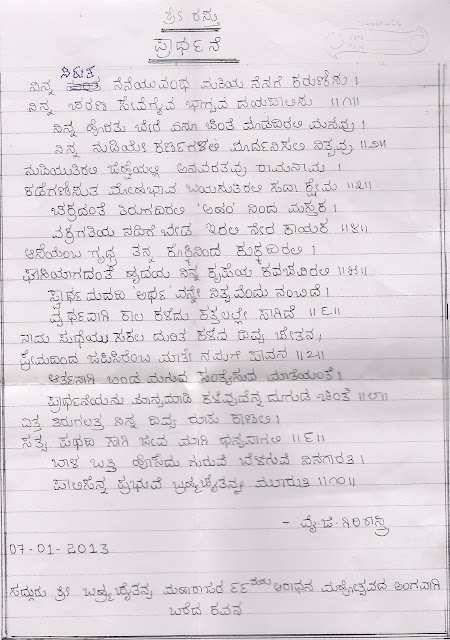 ಶ್ರೀ ರಸ್ತು
ಪ್ರಾರ್ಥನೆ
ನಿರುತ
ನಿನ್ನ ನೆನೆಯುವಂಥ ಮತಿಯ ನೆನಗೆ ಕರುಣಿಸು ।
ನಿನ್ನ ಚರಣ ಸೇವೆಗೈವ ಭಾಗ್ಯವ ದಯಪಾಲಿಸು ॥೧॥
ನಿನ್ನ ಹೊರತು ಬೇರೆ ಏನೂ ಚಿಂತೆ ಮಾಡದಿರಲಿ ಮನವು ।
ನಿನ್ನ ನುಡಿಯೇ ಕರ್ಣಗಳಲಿ ಮಾರ್ದನಿಸಲಿ ನಿತ್ಯವು ॥೨॥
ನುಡಿಯುತಿರಲಿ ಜಿಹ್ವೆಯಲ್ಲಿ ಅನವರತವು ರಾಮನಾಮ ।
ಕಡೆಗಣಿಸುತ ಮೋಹಭಾವ ಬಯಸುತಿರಲಿ ಸದಾ ಕ್ಷೇಮ ॥೩॥
ಚಕ್ರದಂತೆ ತಿರುಗದಿರಲಿ 'ಅಹಂ' ನಿಂದ ಮಸ್ತಕ ।
ವಕ್ರಗತಿಯ ನಡಿಗೆ ಬೇಡ ಇರಲಿ ನೇರ ಕಾಯಕ ॥೪॥
ಆಸೆಯೆಂಬ ಗೃಧ್ರ ತನ್ನ ಕೊಕ್ಕಿನಿಂದ ಕುಕ್ಕದಿರಲಿ ।
ಘಾಸಿಯಾಗದಂತೆ ಹೃದಯ ನಿನ್ನ ಕೃಪೆಯ ಕವಚವಿರಲಿ ॥೫॥
ಸ್ವಾರ್ಥಮದದಿ ಅರ್ಥವನ್ನೇ ನಿತ್ಯವೆಂದು ನಂಬಿದೆ ।
ವ್ಯರ್ಥವಾಗಿ ಕಾಲ ಕಳೆದು ಕತ್ತಲಲ್ಲೇ ಸಾಗಿದೆ ॥೬॥
ನಾಮ ಸುಧೆಯು ಸಕಲ ದುರಿತ ಕಳೆವ ದಿವ್ಯ ಚೇತನ,
ಪ್ರೇಮದಿಂದ ಜಪಿಸಿರೆಂಬ ಮಾತೇ ನಮಗೆ ಪಾವನ ॥೭॥
ಆರ್ತನಾಗಿ ಬಂದ ಮಗುವ ಸಂತೈಸುವ ಮಾತೆಯಂತೆ ।
ಪ್ರಾರ್ಥನೆಯನು ಮಾನ್ಯಮಾಡಿ ಕಳೆವುದೆನ್ನ ದುಗುಡ ಚಿಂತೆ ॥೮॥
ಎತ್ತ ತಿರುಗಲತ್ತ ನಿನ್ನ ದಿವ್ಯ ರೂಪ ಕಾಣಲಿ ।
ಸತ್ಯ ಪಥದಿ ಸಾಗಿ ಜೀವ ಮಾಗಿ ಧನ್ಯವಾಗಲಿ ॥೯॥
ಬಾಳ ಬತ್ತಿ ಹೊಸೆದು ಗುರುವೆ ಬೆಳಗುವೆ ನಿನಗಾರತಿ ।
ಪಾಲಿಸೆನ್ನ ಪ್ರಭುವೆ ಬ್ರಹ್ಮಚೈತನ್ಯ ಮೂರುತಿ ॥೧೦॥
- ವೈ.ಜಿ. ಗಿರಿಶಾಸ್ತ್ರಿ
07-01-2013
ಸದ್ಗುರು ಶ್ರೀ ಬ್ರಹ್ಮಚೈತನ್ಯ ಮಹಾರಾಜರ ೯೯ನೆಯ ಆರಾಧನ ಮಹೋತ್ಸವದ ಅಂಗವಾಗಿ
ಬರೆದ ಕವನ